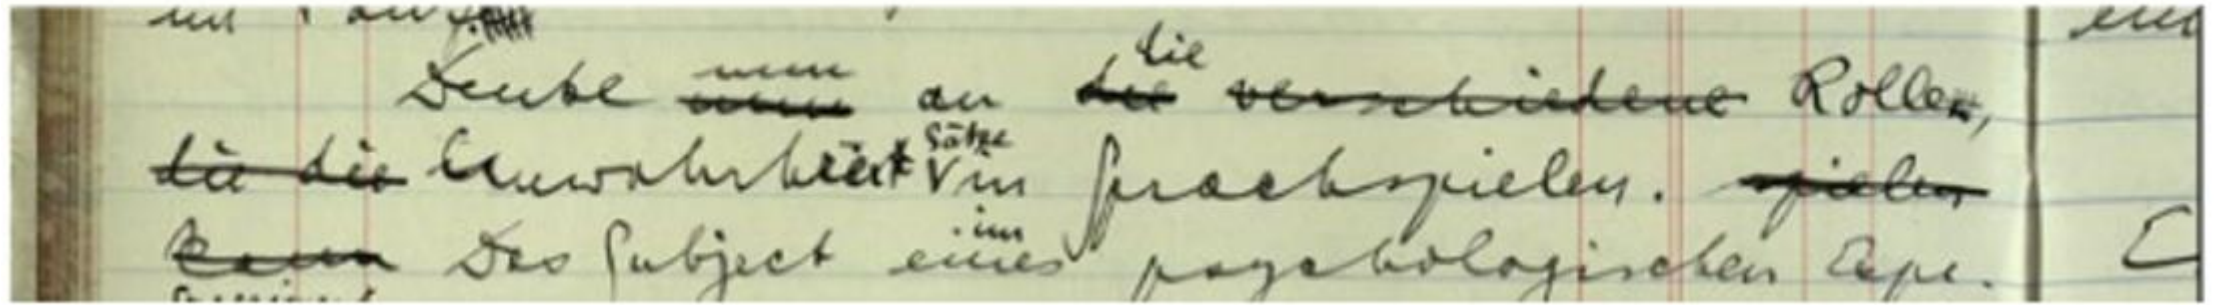 die
Denke nun nun an die verschiedene Rollen,
Sätze
die die Unwahrheit in Sprachspielen. spielen
im
kann Das Subject eines psychologischen Expe-